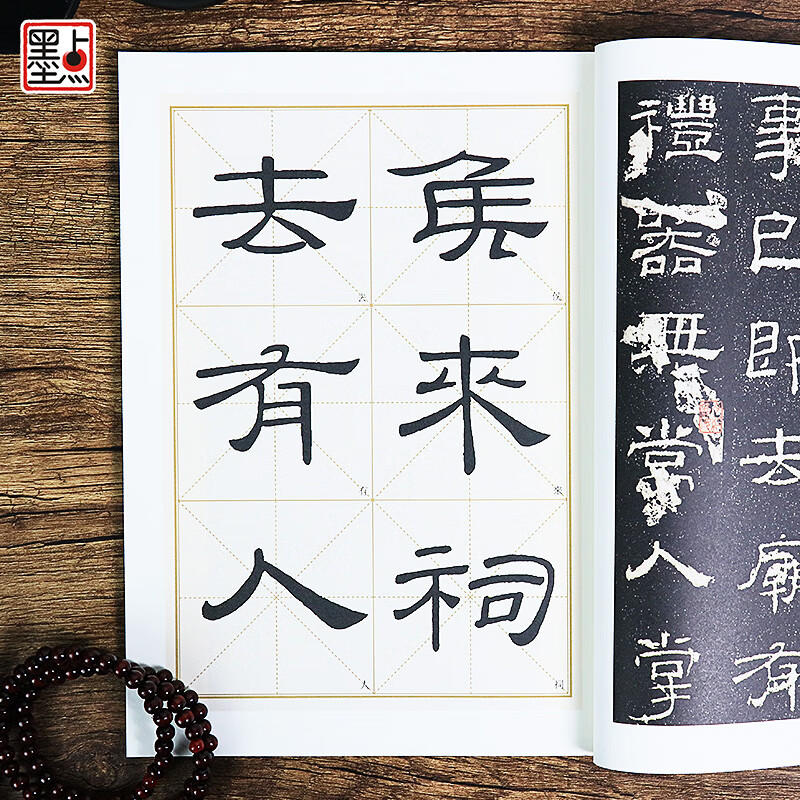 墨点
事已即去廟有
禮器無常人掌
侯來祠
侯來祠
去有人
去有人